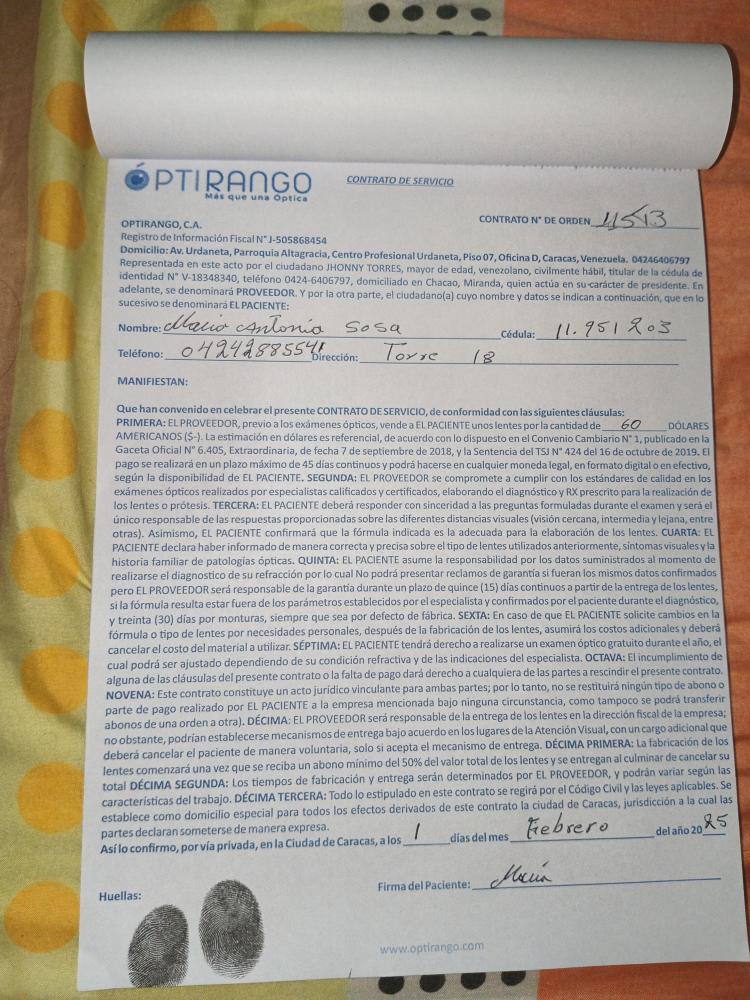 ÓPTIRANGO
Más que una Óptica
CONTRATO DE SERVICIO
CONTRATO N° DE ORDEN 11513
OPTIRANGO, C.A.
Registro de Información Fiscal N° J-505868454
Domicilio: Av. Urdaneta, Parroquia Altagracia, Centro Profesional Urdaneta, Piso 07, Oficina D, Caracas, Venezuela. 04246406797
Representada en este acto por el ciudadano JHONNY TORRES, mayor de edad, venezolano, civilmente hábil, titular de la cédula de
identidad N° V-18348340, teléfono 0424-6406797, domiciliado en Chacao, Miranda, quien actúa en su carácter de presidente. En
adelante, se denominará PROVEEDOR. Y por la otra parte, el ciudadano(a) cuyo nombre y datos se indican a continuación, que en lo
sucesivo se denominará EL PACIENTE:
Nombre: Maria Antonia Sosa Cédula: 11.951203
Teléfono: 04242885541 Dirección: Torre 18
MANIFIESTAN:
Que han convenido en celebrar el presente CONTRATO DE SERVICIO, de conformidad con las siguientes cláusulas:
PRIMERA: EL PROVEEDOR, previo a los exámenes ópticos, vende a EL PACIENTE unos lentes por la cantidad de 60 DÓLARES
AMERICANOS ($-). La estimación en dólares es referencial, de acuerdo con lo dispuesto en el Convenio Cambiario N° 1, publicado en la
Gaceta Oficial N° 6.405, Extraordinaria, de fecha 7 de septiembre de 2018, y la Sentencia del TSJ N° 424 del 16 de octubre de 2019. El
pago se realizará en un plazo máximo de 45 días continuos y podrá hacerse en cualquier moneda legal, en formato digital o en efectivo,
según la disponibilidad de EL PACIENTE. SEGUNDA: EL PROVEEDOR se compromete a cumplir con los estándares de calidad en los
exámenes ópticos realizados por especialistas calificados y certificados, elaborando el diagnóstico y RX prescrito para la realización de
los lentes o prótesis. TERCERA: EL PACIENTE deberá responder con sinceridad a las preguntas formuladas durante el examen y será el
único responsable de las respuestas proporcionadas sobre las diferentes distancias visuales (visión cercana, intermedia y lejana, entre
otras). Asimismo, EL PACIENTE confirmará que la fórmula indicada es la adecuada para la elaboración de los lentes. CUARTA: EL
PACIENTE declara haber informado de manera correcta y precisa sobre el tipo de lentes utilizados anteriormente, síntomas visuales y la
historia familiar de patologías ópticas. QUINTA: EL PACIENTE asume la responsabilidad por los datos suministrados al momento de
realizarse el diagnostico de su refracción por lo cual No podrá presentar reclamos de garantía si fueran los mismos datos confirmados
pero EL PROVEEDOR será responsable de la garantía durante un plazo de quince (15) días continuos a partir de la entrega de los lentes,
si la fórmula resulta estar fuera de los parámetros establecidos por el especialista y confirmados por el paciente durante el diagnóstico,
y treinta (30) días por monturas, siempre que sea por defecto de fábrica. SEXTA: En caso de que EL PACIENTE solicite cambios en la
fórmula o tipo de lentes por necesidades personales, después de la fabricación de los lentes, asumirá los costos adicionales y deberá
cancelar el costo del material a utilizar. SÉPTIMA: EL PACIENTE tendrá derecho a realizarse un examen óptico gratuito durante el año, el
cual podrá ser ajustado dependiendo de su condición refractiva y de las indicaciones del especialista. OCTAVA: El incumplimiento de
alguna de las cláusulas del presente contrato o la falta de pago dará derecho a cualquiera de las partes a rescindir el presente contrato.
NOVENA: Este contrato constituye un acto jurídico vinculante para ambas partes; por lo tanto, no se restituirá ningún tipo de abono o
parte de pago realizado por EL PACIENTE a la empresa mencionada bajo ninguna circunstancia, como tampoco se podrá transferir
abonos de una orden a otra). DÉCIMA: EL PROVEEDOR será responsable de la entrega de los lentes en la dirección fiscal de la empresa;
no obstante, podrían establecerse mecanismos de entrega bajo acuerdo en los lugares de la Atención Visual, con un cargo adicional que
deberá cancelar el paciente de manera voluntaria, solo si acepta el mecanismo de entrega. DÉCIMA PRIMERA: La fabricación de los
lentes comenzará una vez que se reciba un abono mínimo del 50% del valor total de los lentes y se entregan al culminar de cancelar su
total DÉCIMA SEGUNDA: Los tiempos de fabricación y entrega serán determinados por EL PROVEEDOR, y podrán variar según las
características del trabajo. DÉCIMA TERCERA: Todo lo estipulado en este contrato se regirá por el Código Civil y las leyes aplicables. Se
establece como domicilio especial para todos los efectos derivados de este contrato la ciudad de Caracas, jurisdicción a la cual las
partes declaran someterse de manera expresa.
Así lo confirmo, por vía privada, en la Ciudad de Caracas, a los 1 días del mes Febrero del año 2025
Huellas:
Firma del Paciente: Maria
www.optirango.com